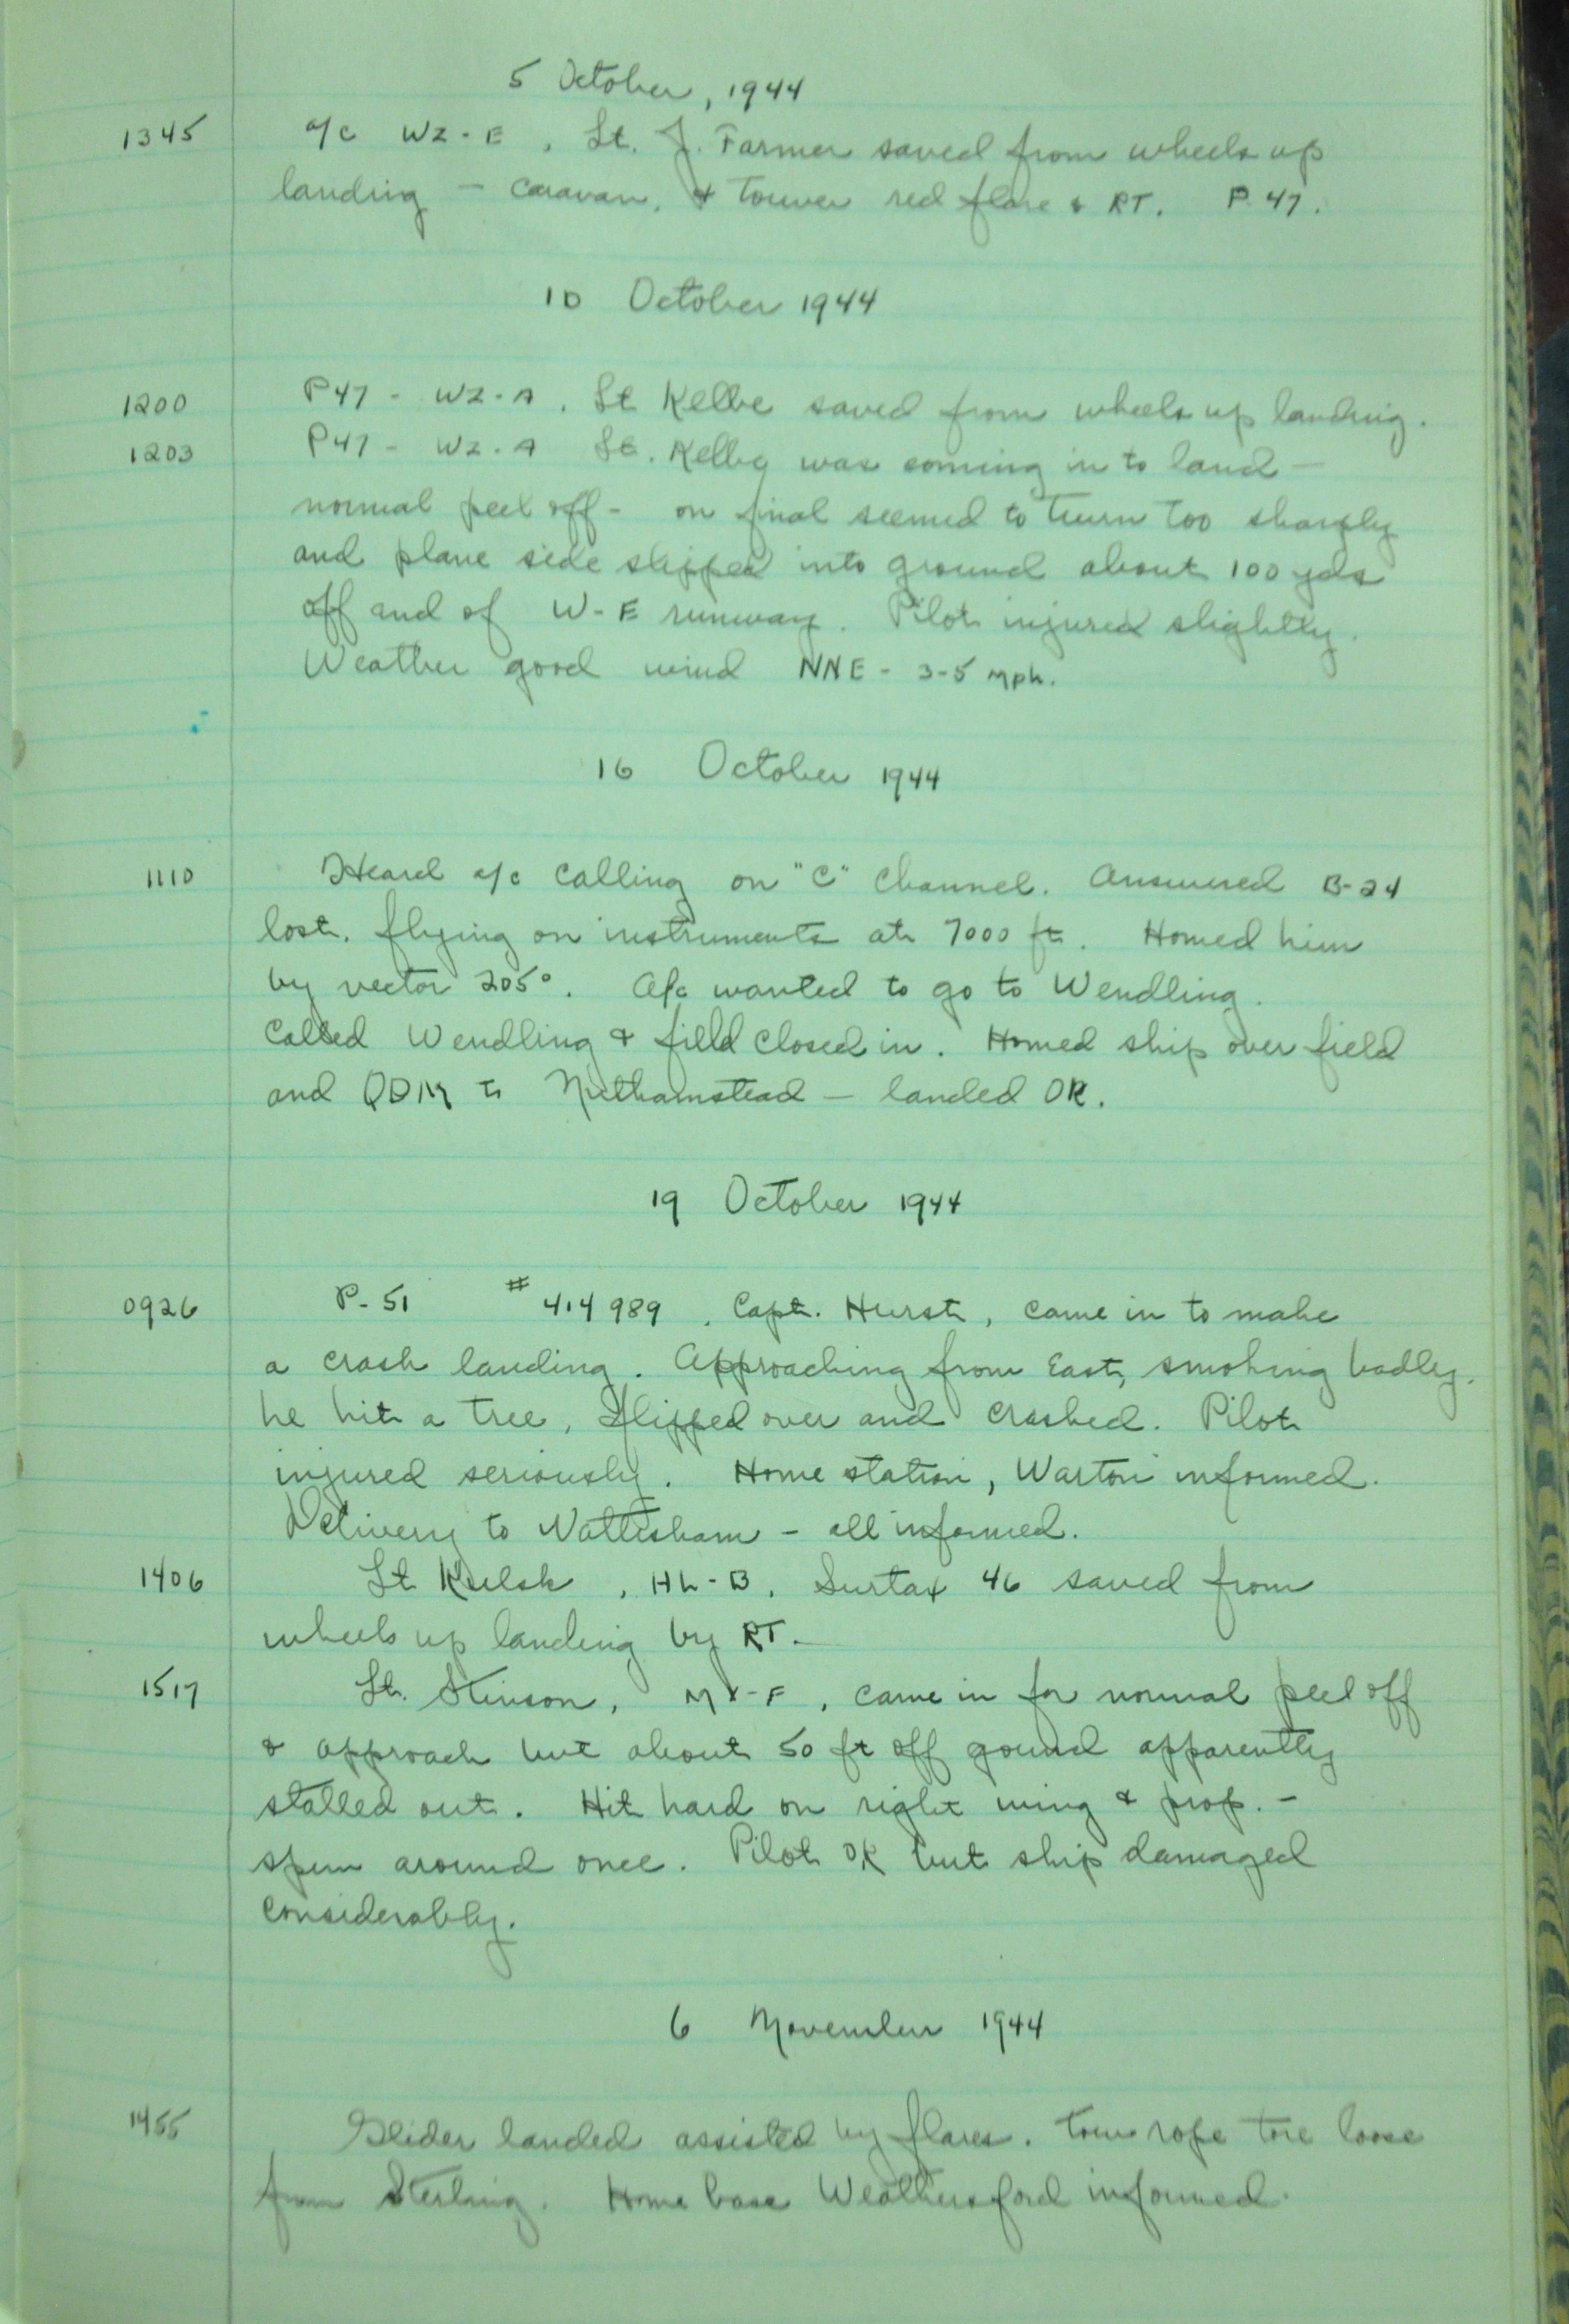 5 October, 1944
1345 a/c WZ-E, Lt. J. Farmer saved from wheels up
landing - Caravan, & Tower red flare & RT. P.47.
10 October 1944
1200 P47 - WZ-A. Lt Kelbe saved from wheels up landing.
1203 P47 - WZ-A Lt. Kelby was coming in to land -
normal peel off - on final seemed to turn too sharply
and plane side slipped into ground about 100 yds
off end of W-E runway. Pilot injured slightly.
Weather good wind NNE - 3-5 mph.
16 October 1944
1110 Heard a/c calling on "C" channel. Answered B-24
lost, flying on instruments at 7000 ft. Homed him
by vector 205°. A/c wanted to go to Wendling.
Called Wendling & field closed in. Homed ship over field
and QDM to Nuthamstead - landed OK.
19 October 1944
0926 P-51 # 414989, Capt. Hurst, came in to make
a crash landing. Approaching from East, smoking badly,
he hit a tree, flipped over and crashed. Pilot
injured seriously. Home station, Warton informed.
Delivery to Wattisham - all informed.
1406 Lt , HL-B, Surtax 46 saved from
wheels up landing by RT.
1517 Lt. Stinson, MX-F, came in for normal peel off
& approach but about 50 ft off gound apparently
stalled out. Hit hard on right wing & prop. -
spun around once. Pilot OK but ship damaged
considerably.
6 November 1944
1455 Glider landed assisted by flares. Tow rope tore loose
from Sterling. Home base Weathersford informed.